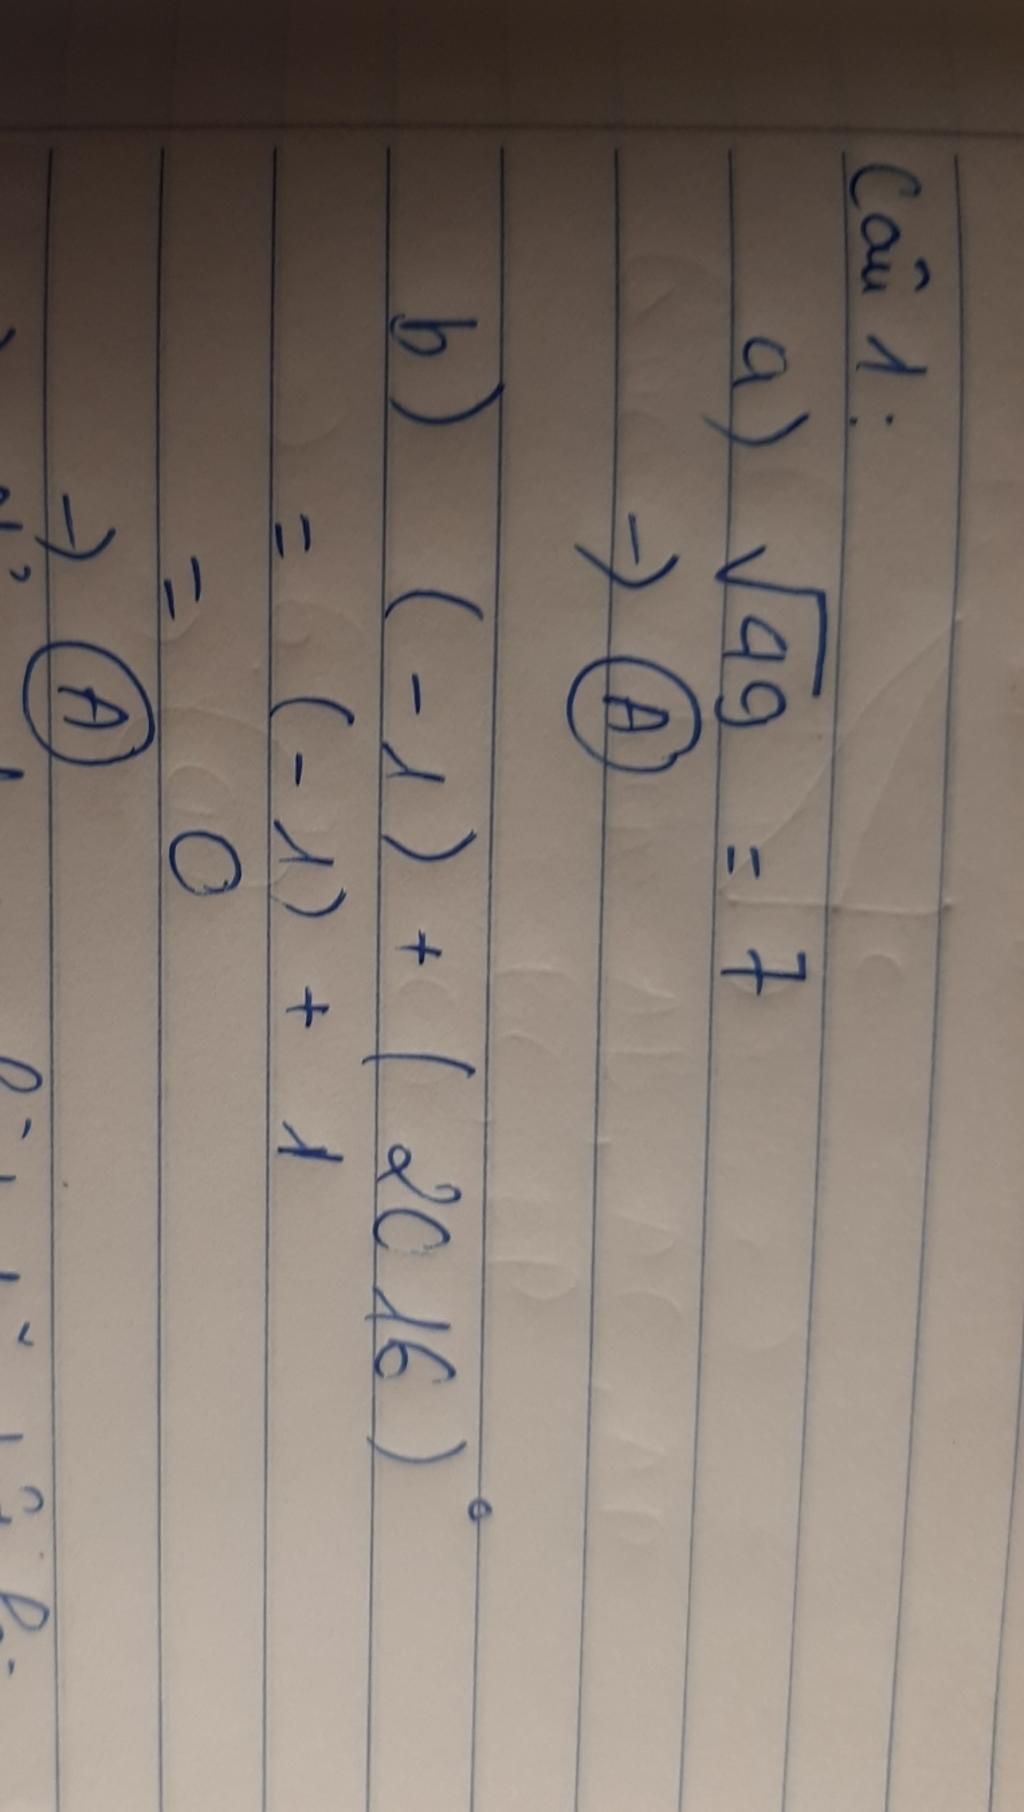 Câu 1:
a) √49 = 7
→ A
b) (-1) + (2016)⁰
= (-1) + 1
= 0
→ A